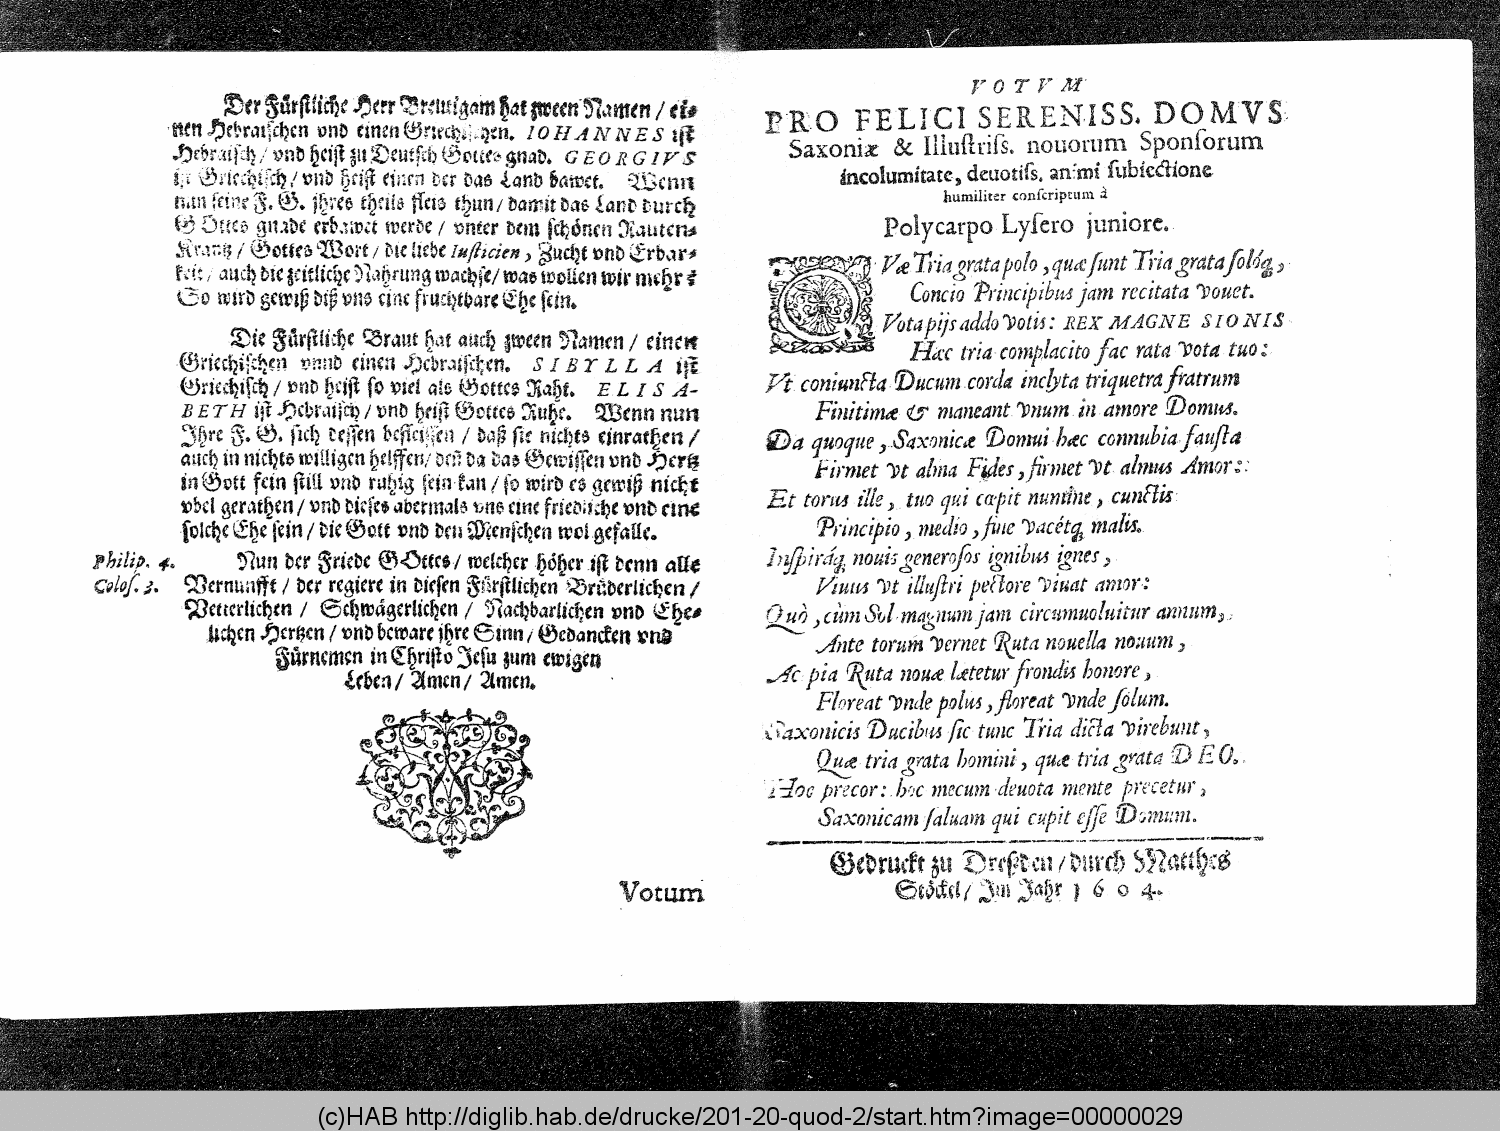 Der Fürſtliche Herr Breutigam hat zween Namen / ei⸗
nen Hebraiſchen vnd einen Griechiſchen. IOHANNES iſt
Hebraiſch / vnd heiſt zu Deutſch Gottes gnad. GEORGIVS
iſt Griechiſch / vnd heiſt einen der das Land bawet. Wenn
nun ſeine F. G. jhres theils fleis thun / damit das Land durch
GOttes gnade erbawet werde / vnter dem ſchönen Rauten⸗
Krantz / Gottes Wort / die liebe Iuſticien, Zucht vnd Erbar⸗
keit / auch die zeitliche Nahrung wachſe / was wollen wir mehr?
So wird gewiß diß vns eine fruchtbare Ehe ſein.
Die Fürſtliche Braut hat auch zween Namen / einen
Griechiſchen vnnd einen Hebraiſchen. SIBYLLA iſt
Griechiſch / vnd heiſt ſo viel als Gottes Raht. ELISA-
BETH iſt Hebraiſch / vnd heiſt Gottes Ruhe. Wenn nun
Jhre F. G. ſich deſſen befleiſſen / daß ſie nichts einrathen /
auch in nichts willigen helffen / deñ da das Gewiſſen vnd Hertz
in Gott fein ſtill vnd ruhig ſein kan / ſo wird es gewiß nicht
vbel gerathen / vnd dieſes abermals vns eine friedliche vnd eine
ſolche Ehe ſein / die Gott vnd den Menſchen wol gefalle.
Philip. 4. Nun der Friede GOttes / welcher höher iſt denn alle
Coloſ. 3. Vernunfft / der regiere in dieſen Fürſtlichen Brüderlichen /
Vetterlichen / Schwägerlichen / Nachbarlichen vnd Ehe⸗
lichen Hertzen / vnd beware jhre Sinn / Gedancken vnd
Fürnemen in Chriſto Jeſu zum ewigen
Leben / Amen / Amen.
Votum
VOTVM
PRO FELICI SERENISS. DOMVS
Saxoniæ & Illuſtriſs. nouorum Sponſorum
incolumitate, deuotiſs. animi ſubiectione
humiliter conſcriptum à
Polycarpo Lyſero juniore.
QVæ Tria grata polo, quæ ſunt Tria grata ſolóq́;,
Concio Principibus jam recitata vouet.
Vota pijs addo votis: REX MAGNE SIONIS
Hæc tria complacito fac rata vota tuo:
Vt coniuncta Ducum corda inclyta triquetra fratrum
Finitimæ & maneant vnum in amore Domus.
Da quoque, Saxonicæ Domui hæc connubia fauſta
Firmet vt alma Fides, firmet vt almus Amor:
Et torus ille, tuo qui cœpit numine, cunctis
Principio, medio, fine vacétq́; malis.
Inſpiráq́; nouis generoſos ignibus ignes,
Viuus vt illuſtri pectore viuat amor:
Quò, cùm Sol magnum jam circumuoluitur annum,
Ante torum vernet Ruta nouella nouum,
Ac pia Ruta nouæ lætetur frondis honore,
Floreat vnde polus, floreat vnde ſolum.
Saxonicis Ducibus ſic tunc Tria dicta virebunt,
Quæ tria grata homini, quæ tria grata DEO.
Hoc precor: hoc mecum deuota mente precetur,
Saxonicam ſaluam qui cupit eſſe Domum.
Gedruckt zu Dreſden / durch Matthes
Stöckel / Im Jahr 1604.
(c)HAB http://diglib.hab.de/drucke/201-20-quod-2/start.htm?image=00000029